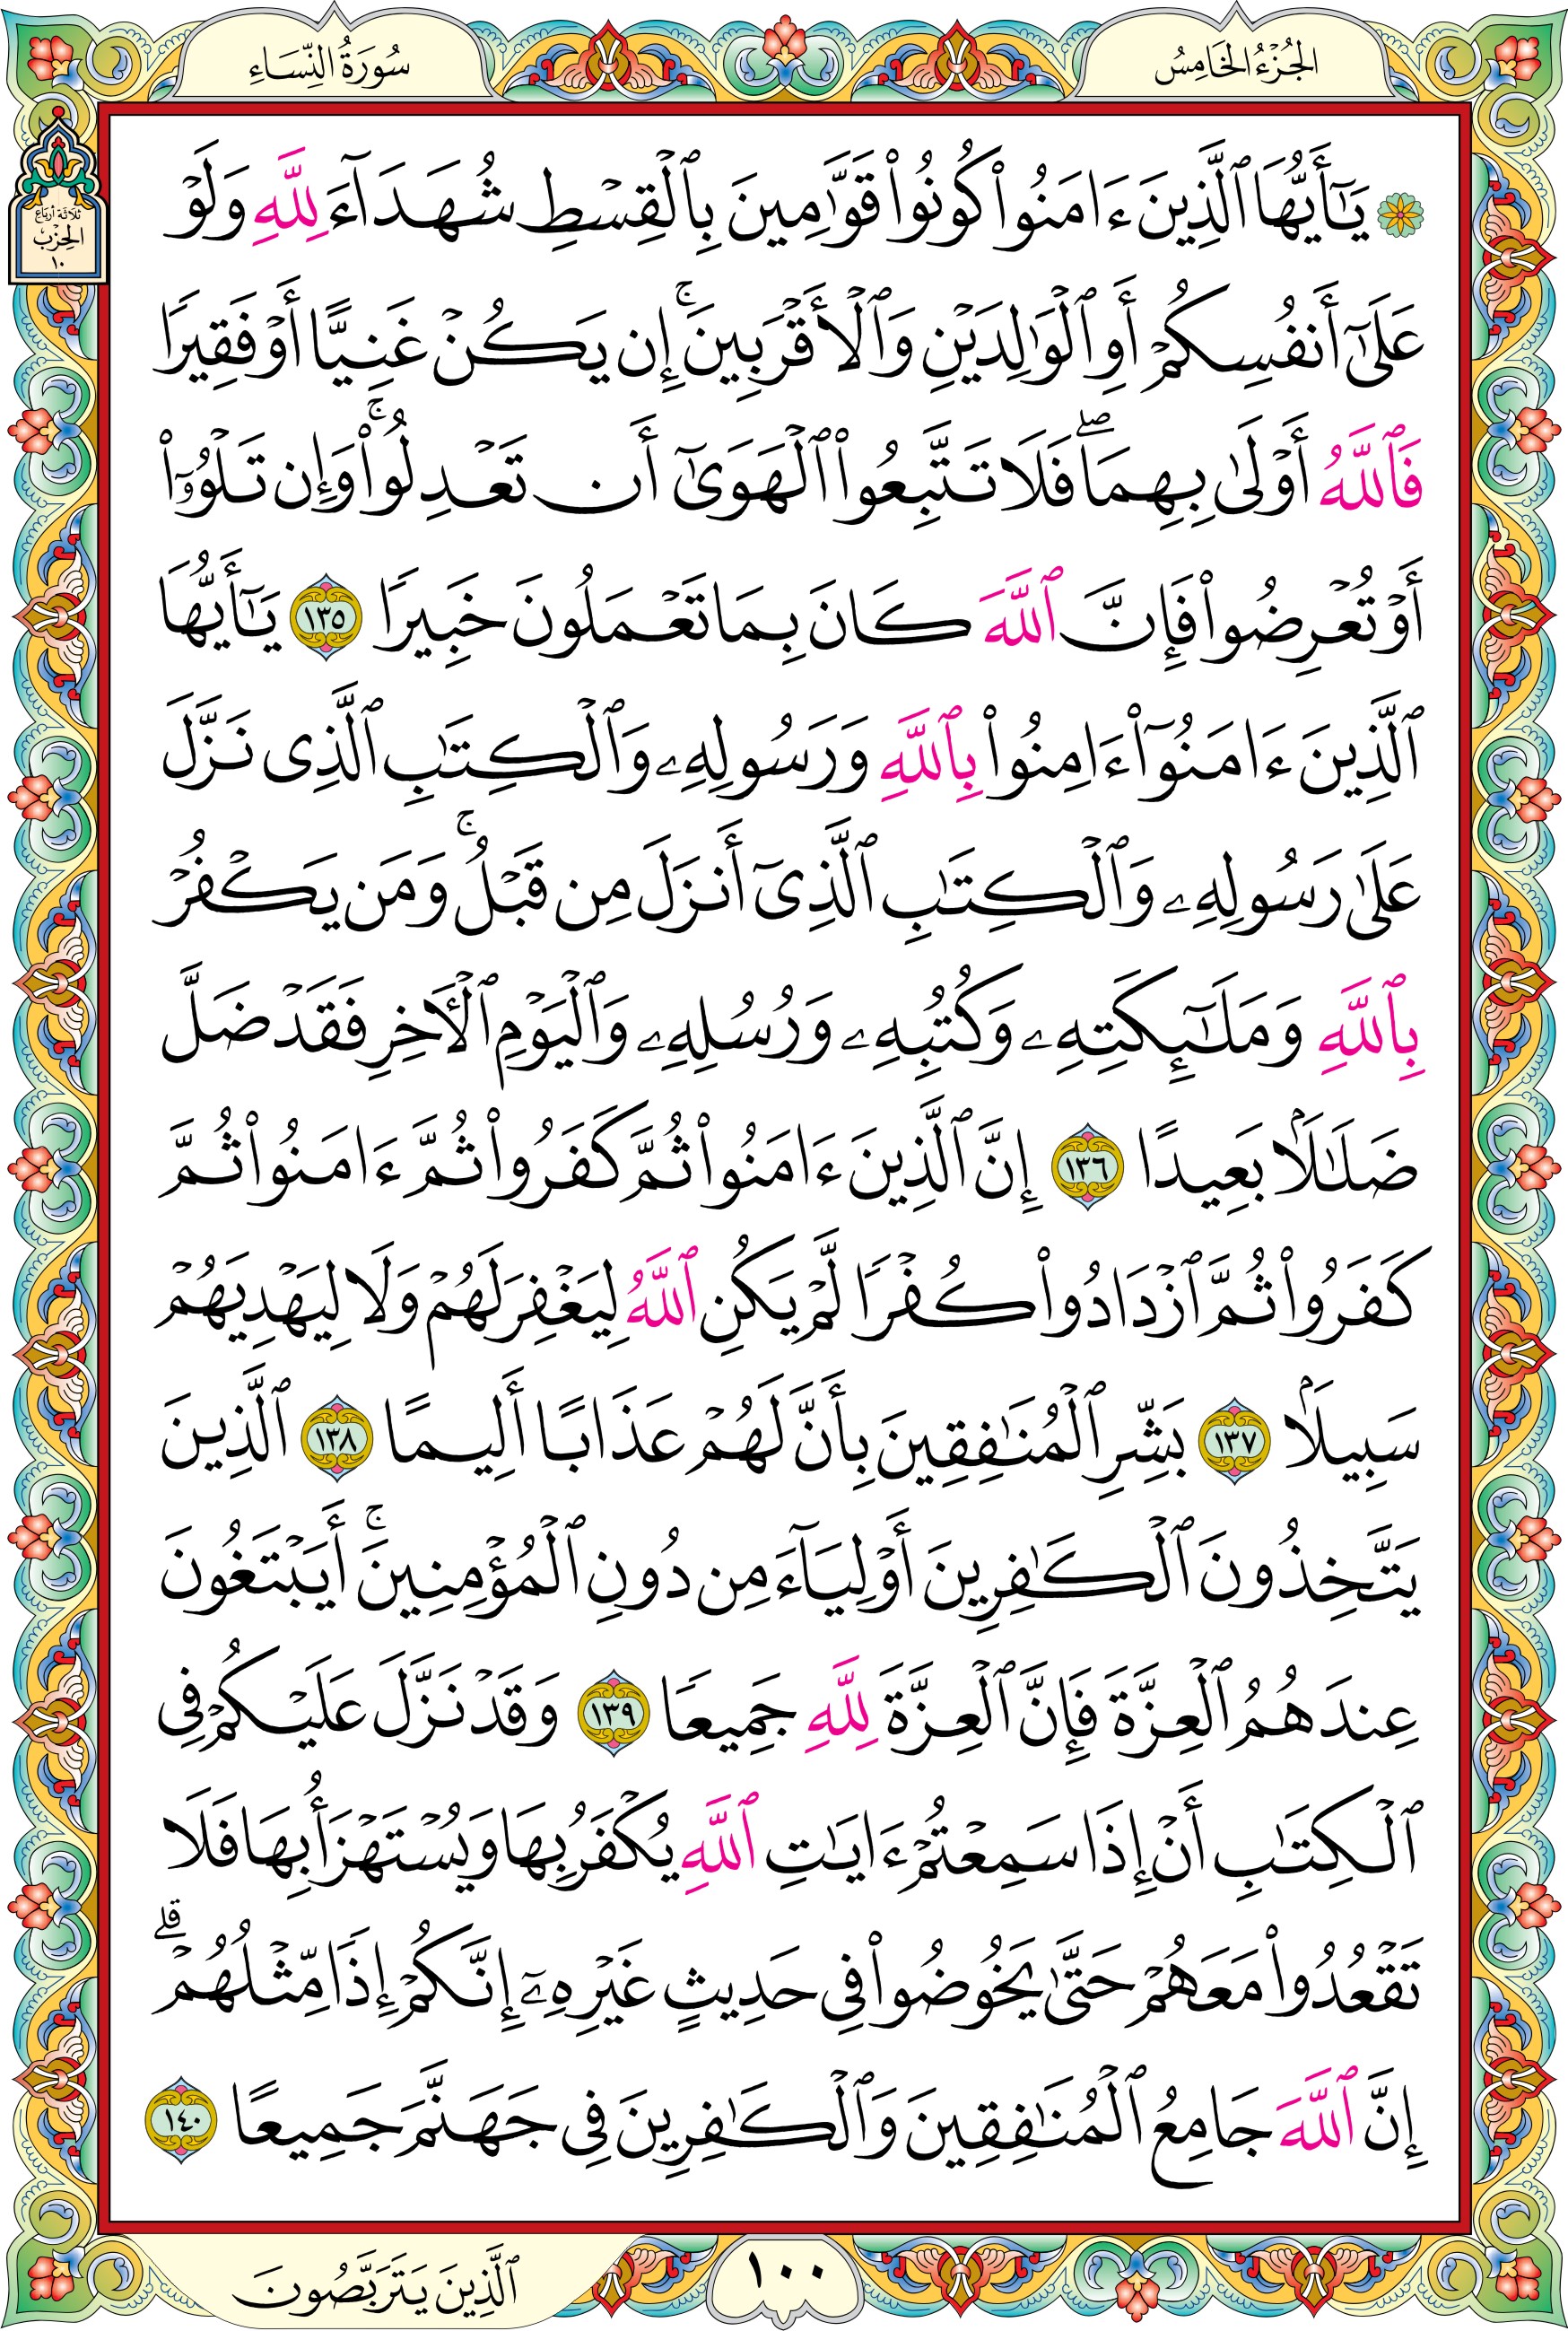 الجُزْءُ الخَامِسُ
سُورَةُ النِّسَاءِ
ثلاثة أرباع
الحِزْب
١٠
۞ يَٰٓأَيُّهَا ٱلَّذِينَ ءَامَنُوا۟ كُونُوا۟ قَوَّٰمِينَ بِٱلْقِسْطِ شُهَدَآءَ لِلَّهِ وَلَوْ
عَلَىٰٓ أَنفُسِكُمْ أَوِ ٱلْوَٰلِدَيْنِ وَٱلْأَقْرَبِينَ ۚ إِن يَكُنْ غَنِيًّا أَوْ فَقِيرًا
فَٱللَّهُ أَوْلَىٰ بِهِمَا ۖ فَلَا تَتَّبِعُوا۟ ٱلْهَوَىٰٓ أَن تَعْدِلُوا۟ ۚ وَإِن تَلْوُۥٓا۟
أَوْ تُعْرِضُوا۟ فَإِنَّ ٱللَّهَ كَانَ بِمَا تَعْمَلُونَ خَبِيرًا ١٣٥ يَٰٓأَيُّهَا
ٱلَّذِينَ ءَامَنُوٓا۟ ءَامِنُوا۟ بِٱللَّهِ وَرَسُولِهِۦ وَٱلْكِتَٰبِ ٱلَّذِى نَزَّلَ
عَلَىٰ رَسُولِهِۦ وَٱلْكِتَٰبِ ٱلَّذِىٓ أَنزَلَ مِن قَبْلُ ۚ وَمَن يَكْفُرْ
بِٱللَّهِ وَمَلَٰٓئِكَتِهِۦ وَكُتُبِهِۦ وَرُسُلِهِۦ وَٱلْيَوْمِ ٱلْـَٔاخِرِ فَقَدْ ضَلَّ
ضَلَٰلًۢا بَعِيدًا ١٣٦ إِنَّ ٱلَّذِينَ ءَامَنُوا۟ ثُمَّ كَفَرُوا۟ ثُمَّ ءَامَنُوا۟ ثُمَّ
كَفَرُوا۟ ثُمَّ ٱزْدَادُوا۟ كُفْرًا لَّمْ يَكُنِ ٱللَّهُ لِيَغْفِرَ لَهُمْ وَلَا لِيَهْدِيَهُمْ
سَبِيلًۢا ١٣٧ بَشِّرِ ٱلْمُنَٰفِقِينَ بِأَنَّ لَهُمْ عَذَابًا أَلِيمًا ١٣٨ ٱلَّذِينَ
يَتَّخِذُونَ ٱلْكَٰفِرِينَ أَوْلِيَآءَ مِن دُونِ ٱلْمُؤْمِنِينَ ۚ أَيَبْتَغُونَ
عِندَهُمُ ٱلْعِزَّةَ فَإِنَّ ٱلْعِزَّةَ لِلَّهِ جَمِيعًا ١٣٩ وَقَدْ نَزَّلَ عَلَيْكُمْ فِى
ٱلْكِتَٰبِ أَنْ إِذَا سَمِعْتُمْ ءَايَٰتِ ٱللَّهِ يُكْفَرُ بِهَا وَيُسْتَهْزَأُ بِهَا فَلَا
تَقْعُدُوا۟ مَعَهُمْ حَتَّىٰ يَخُوضُوا۟ فِى حَدِيثٍ غَيْرِهِۦٓ ۚ إِنَّكُمْ إِذًا مِّثْلُهُمْ ۗ
إِنَّ ٱللَّهَ جَامِعُ ٱلْمُنَٰفِقِينَ وَٱلْكَٰفِرِينَ فِى جَهَنَّمَ جَمِيعًا ١٤٠
١٠٠
ٱلَّذِينَ يَتَرَبَّصُونَ